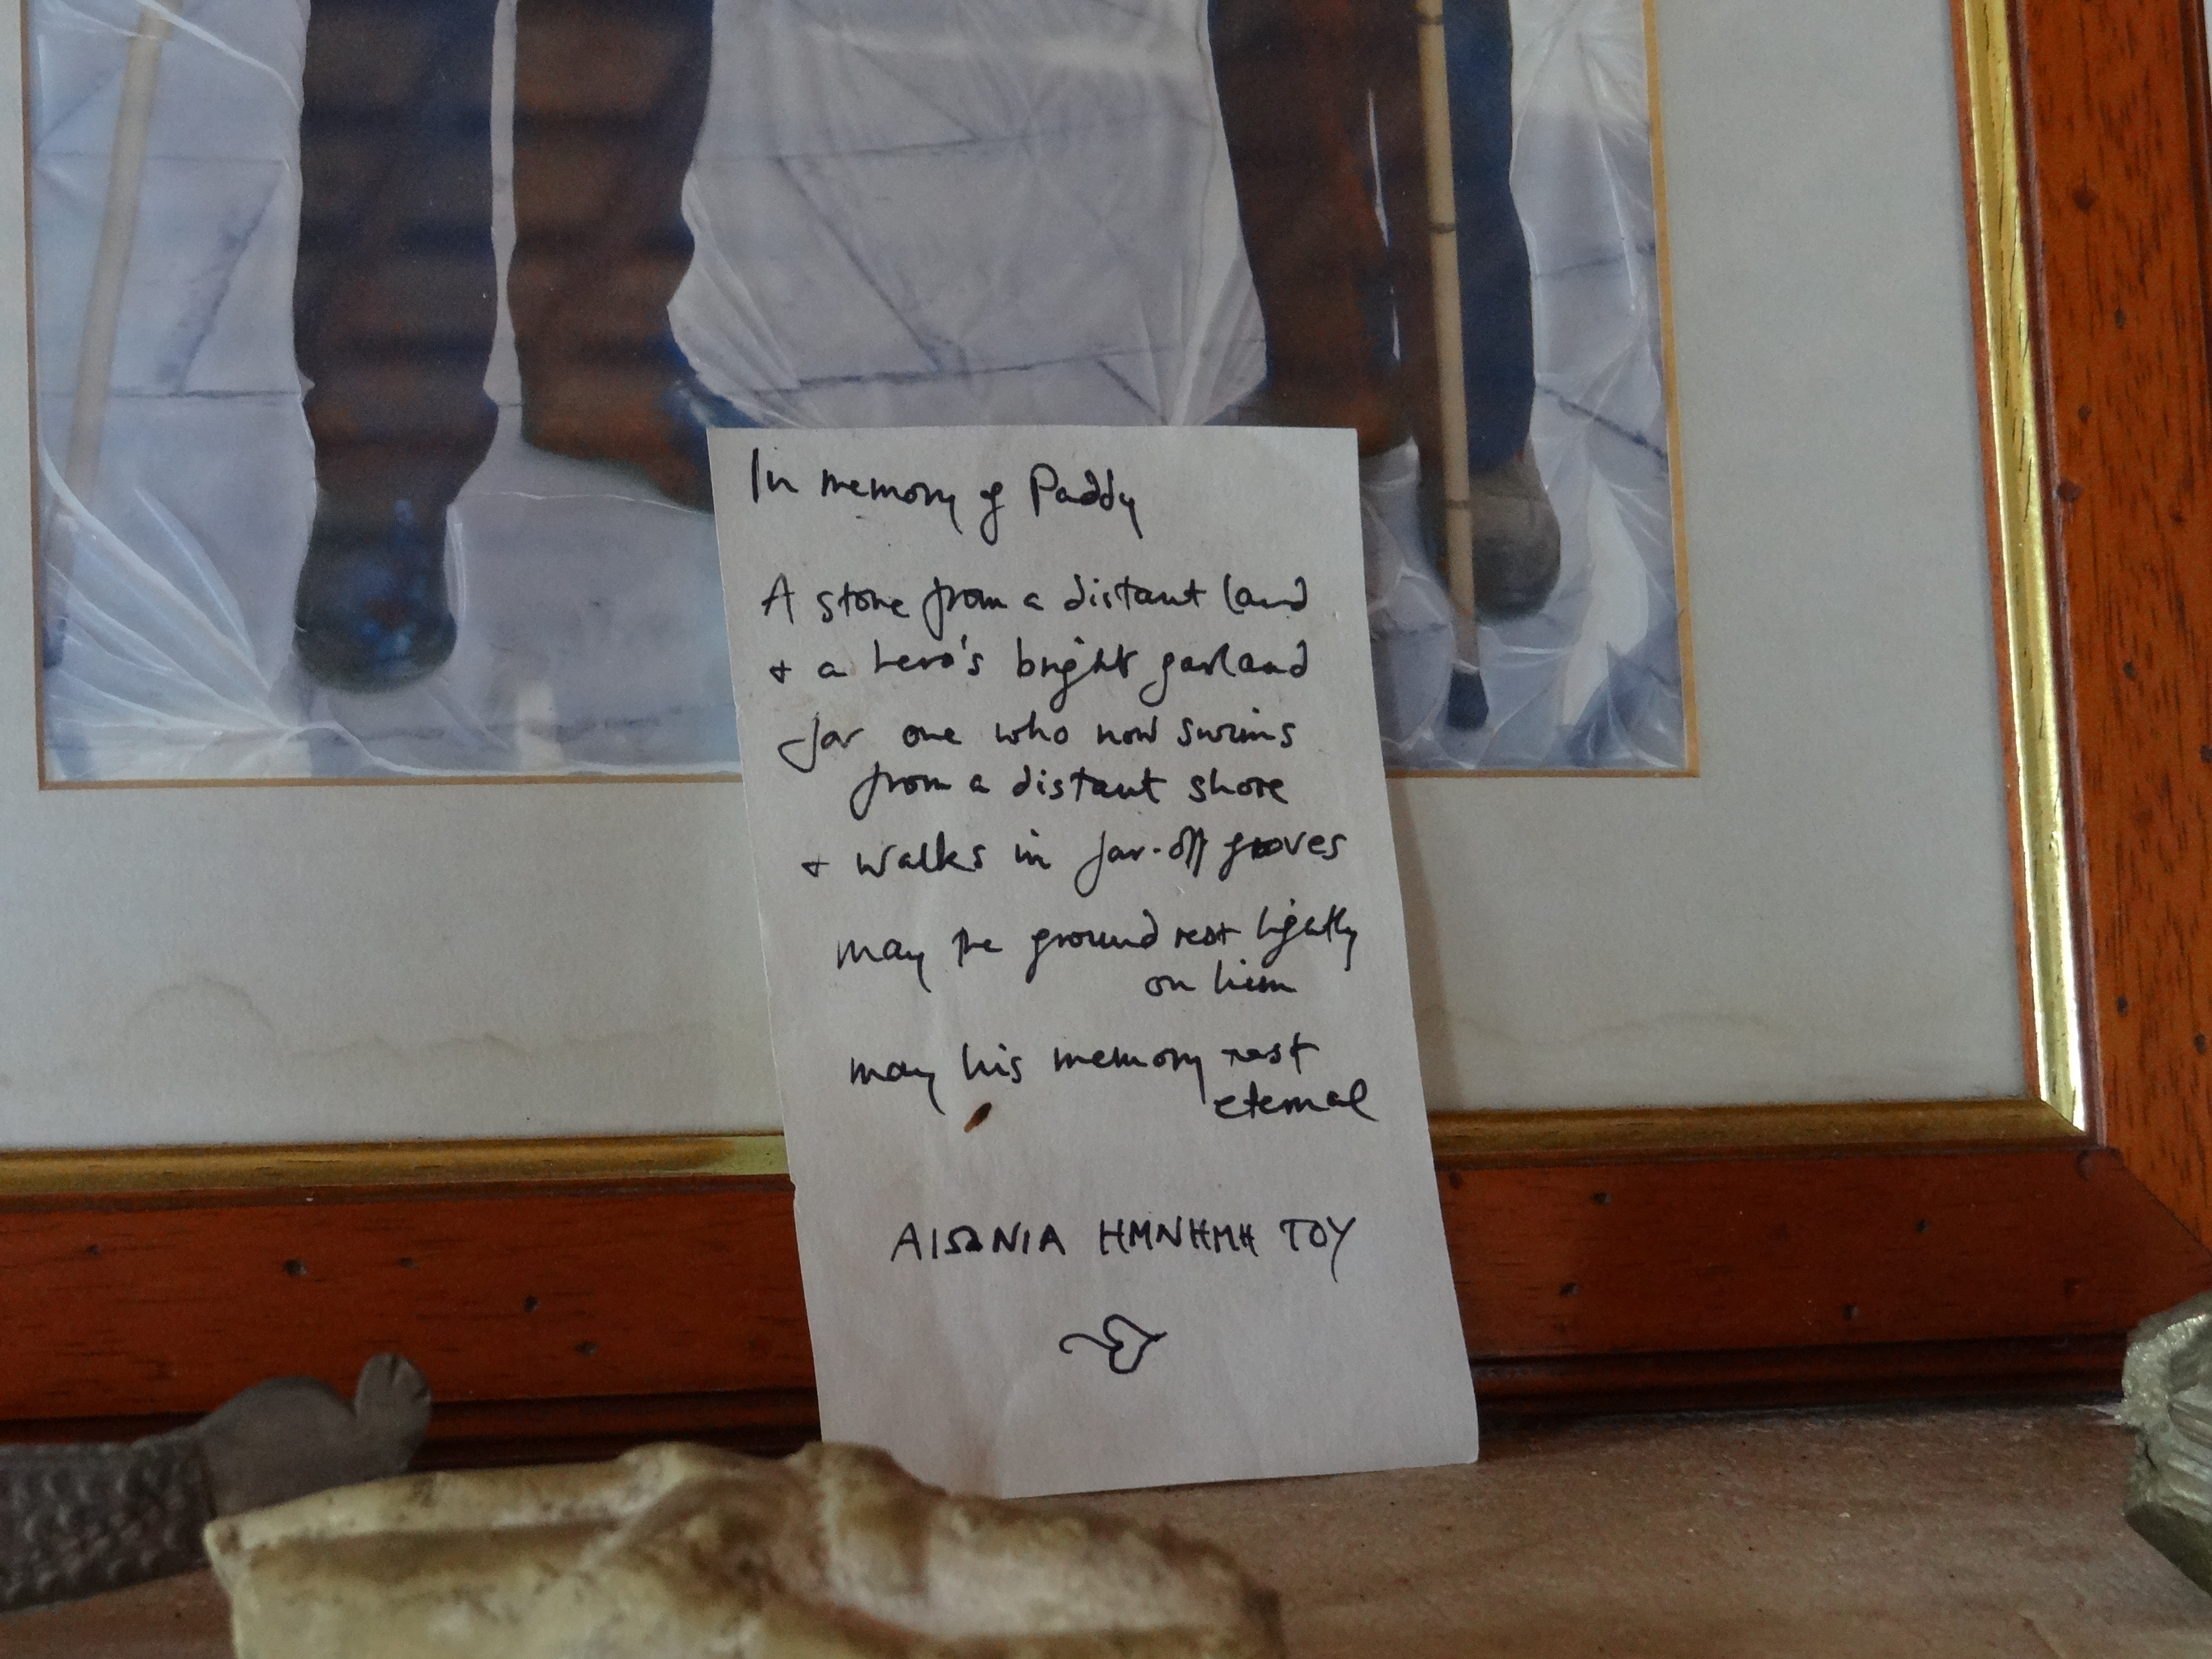 In memory of Paddy
A stone from a distant land
+ a hero's bright garland
for one who now swims
from a distant shore
+ walks in far-off groves
may the ground rest lightly
on him
may his memory rest
eternal
ΑΙΩΝΙΑ Η ΜΝΗΜΗ ΤΟΥ